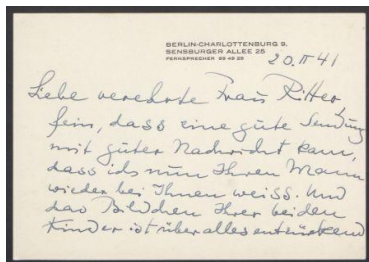 BERLIN-CHARLOTTENBURG 9,
SENSBURGER ALLEE 25
FERNSPRECHER 99 49 29
20. II 41
Liebe verehrte Frau Ritter,
fein, dass eine gute Sendung
mit guter Nachricht kam,
dass ich nun Ihren Mann
wieder bei Ihnen weiss. Und
das Bildchen Ihrer beiden
Kinder ist über alles entzückend